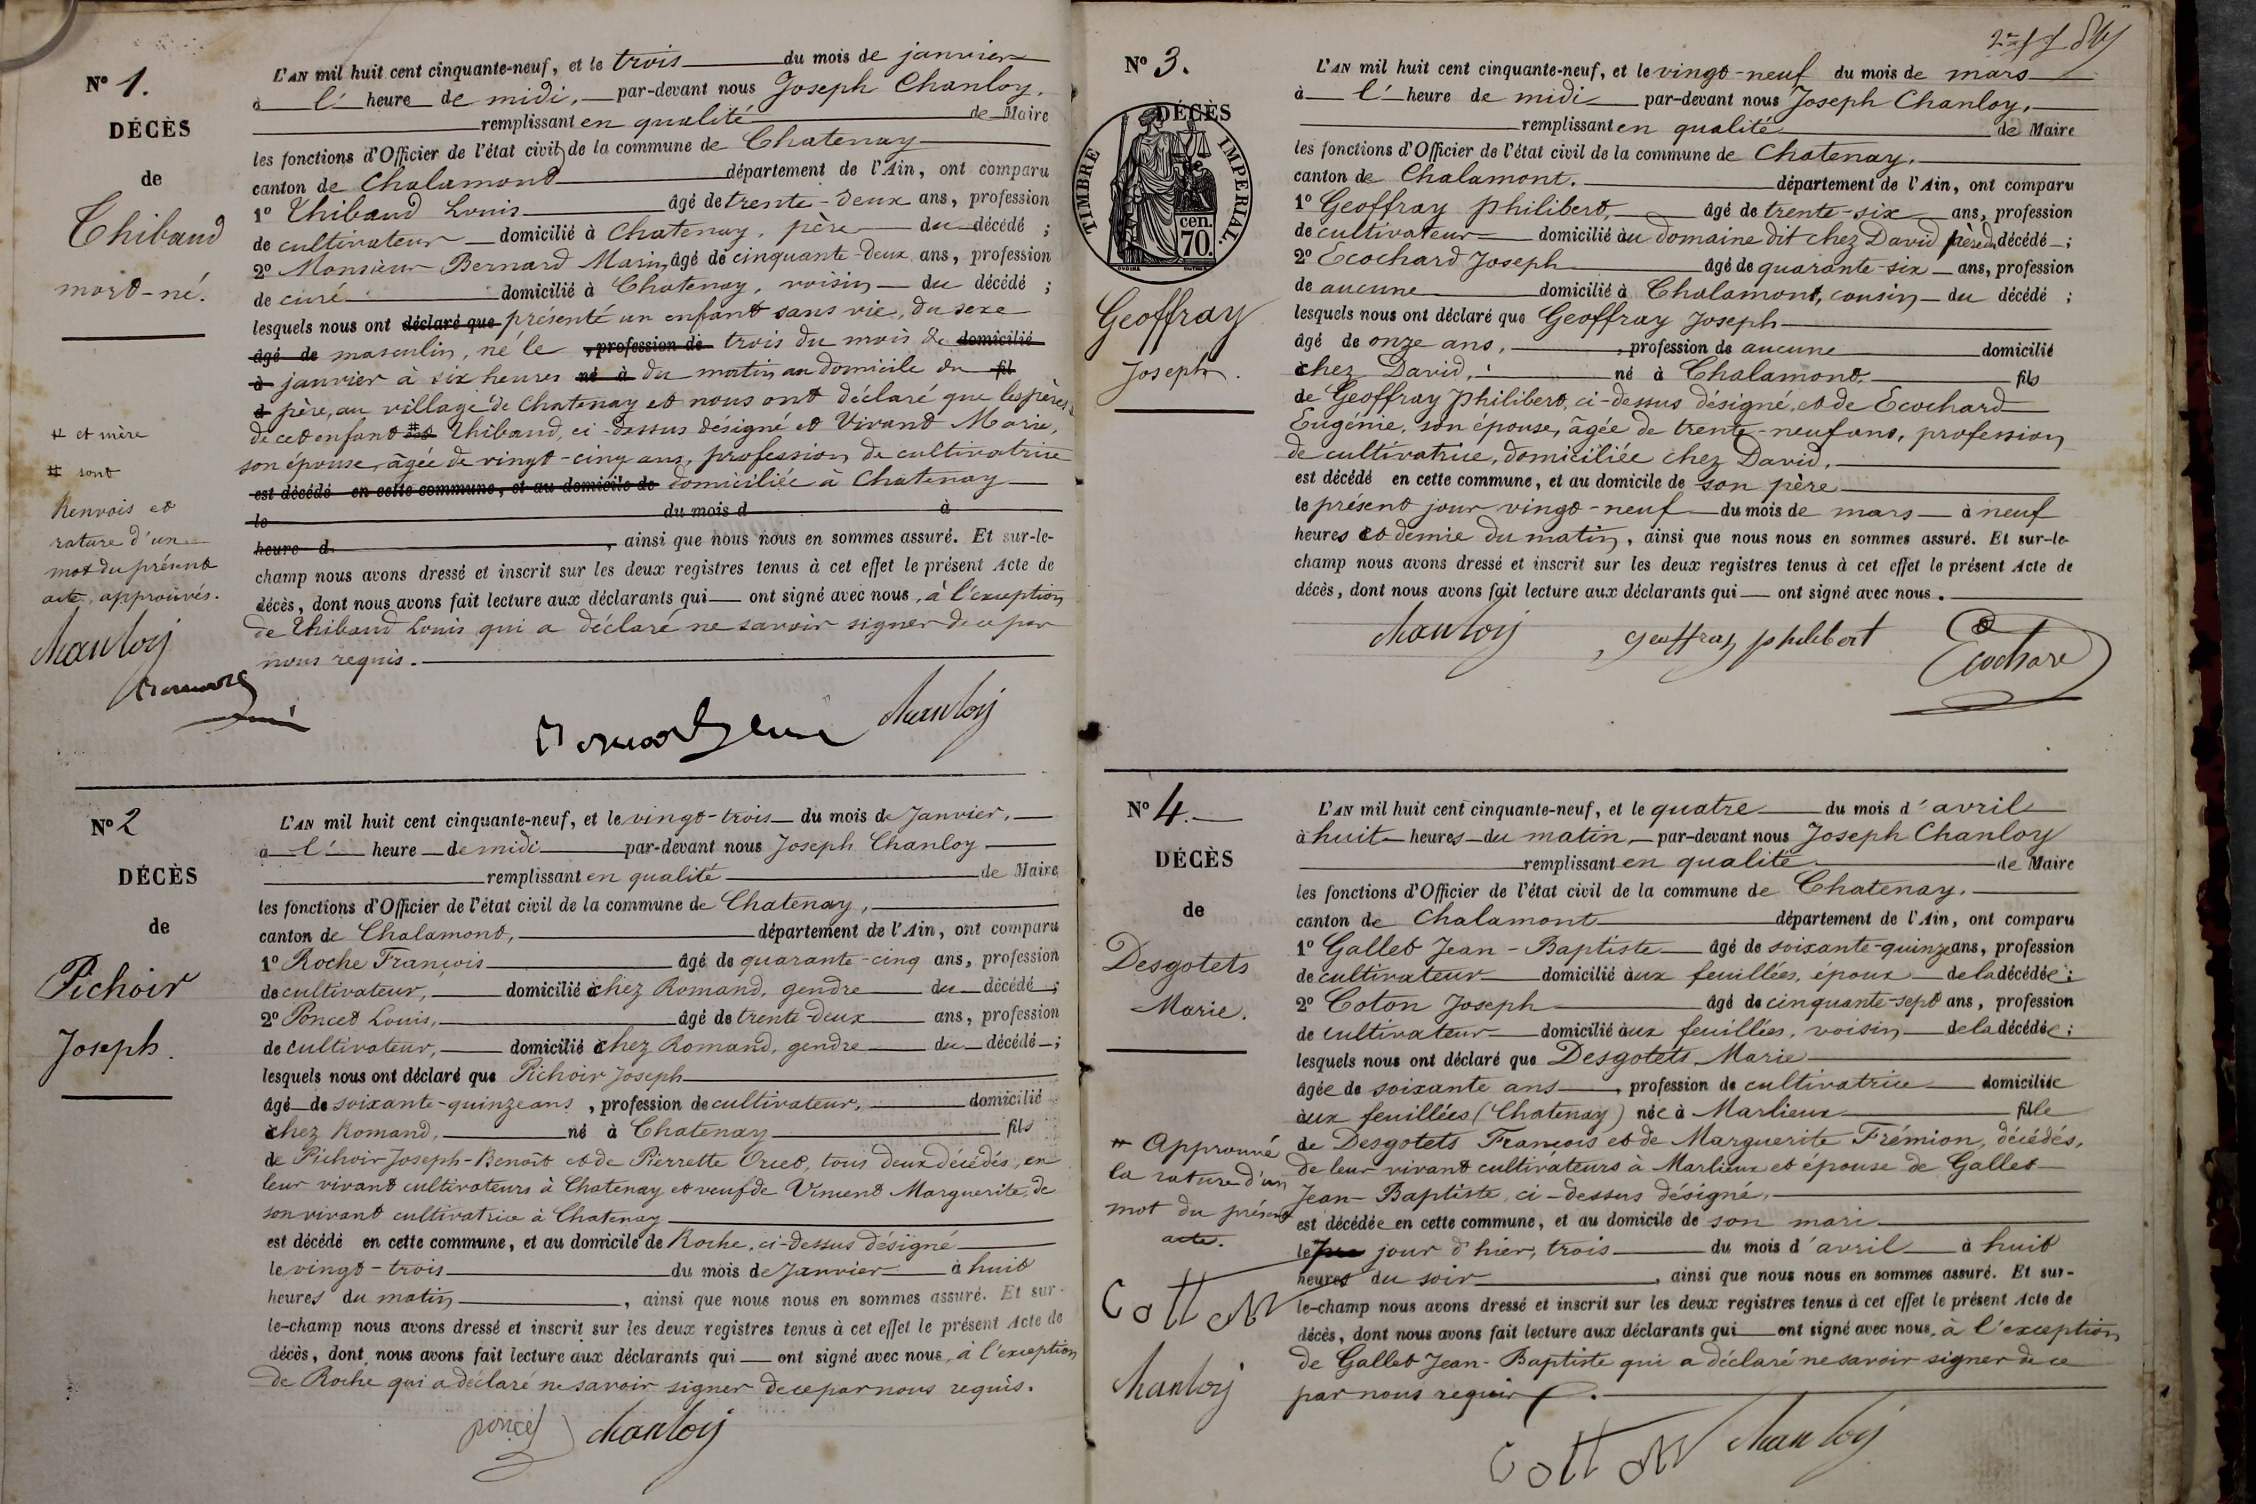 N° 1.
DÉCÈS
de
Thibaud
mort-né.
# et mère
# sont
Renvois et
rature d'un
mot du présent
acte, approuvés.
Chanloy
L'AN mil huit cent cinquante-neuf, et le trois du mois de janvier
à l' heure de midi, par-devant nous Joseph Chanloy,
remplissant en qualité de Maire
les fonctions d'Officier de l'état civil de la commune de Chatenay
canton de Chalamont département de l'Ain, ont comparu
1° Thibaud Louis âgé de trente-deux ans, profession
de cultivateur domicilié à Chatenay, père du décédé ;
2° Monsieur Bernard Marin, âgé de cinquante-deux ans, profession
de curé domicilié à Chatenay, voisin du décédé ;
lesquels nous ont déclaré que présenté un enfant sans vie, du sexe
âgé de masculin, né le , profession de trois du mois de domicilié
à janvier à six heures né à du matin au domicile du fil
d père, au village de Chatenay et nous ont déclaré que les père
de cet enfant # est Thibaud, ci-dessus désigné et Vivant Marie,
son épouse, âgée de vingt-cinq ans, profession de cultivatrice
est décédé en cette commune, et au domicile de domiciliée à Chatenay
le du mois d à
heure d , ainsi que nous nous en sommes assuré. Et sur-le-
champ nous avons dressé et inscrit sur les deux registres tenus à cet effet le présent Acte de
décès, dont nous avons fait lecture aux déclarants qui ont signé avec nous, à l'exception
de Thibaud Louis qui a déclaré ne savoir signer de ce par
nous requis.
Chanloy
N° 2
DÉCÈS
de
Pichoir
Joseph.
L'AN mil huit cent cinquante-neuf, et le vingt-trois du mois de Janvier,
à l' heure de midi par-devant nous Joseph Chanloy
remplissant en qualité de Maire
les fonctions d'Officier de l'état civil de la commune de Chatenay,
canton de Chalamont, département de l'Ain, ont comparu
1° Roche François âgé de quarante-cinq ans, profession
de cultivateur, domicilié chez Romand, gendre du décédé ;
2° Poncet Louis, âgé de trente-deux ans, profession
de cultivateur, domicilié chez Romand, gendre du décédé ;
lesquels nous ont déclaré que Pichoir Joseph
âgé de soixante-quinze ans , profession de cultivateur, domicilié
chez Romand, né à Chatenay fils
de Pichoir Joseph-Benoît et de Pierrette Oricet, tous deux décédés, en
leur vivant cultivateurs à Chatenay et veuf de Vincent Marguerite, de
son vivant cultivatrice à Chatenay
est décédé en cette commune, et au domicile de Roche, ci-dessus désigné
le vingt-trois du mois de Janvier à huit
heures du matin , ainsi que nous nous en sommes assuré. Et sur-
le-champ nous avons dressé et inscrit sur les deux registres tenus à cet effet le présent Acte de
décès, dont nous avons fait lecture aux déclarants qui ont signé avec nous, à l'exception
de Roche qui a déclaré ne savoir signer de ce par nous requis.
poncet Chanloy
N° 3.
DÉCÈS
TIMBRE IMPERIAL.
70. cen.
Geoffray
Joseph.
L'AN mil huit cent cinquante-neuf, et le vingt-neuf du mois de mars
à l' heure de midi par-devant nous Joseph Chanloy,
remplissant en qualité de Maire
les fonctions d'Officier de l'état civil de la commune de Chatenay,
canton de Chalamont. département de l'Ain, ont comparu
1° Geoffray Philibert, âgé de trente-six ans, profession
de cultivateur domicilié au domaine dit chez David père du décédé ;
2° Ecochard Joseph âgé de quarante-six ans, profession
de aucune domicilié à Chalamont, cousin du décédé ;
lesquels nous ont déclaré que Geoffray Joseph
âgé de onze ans, , profession de aucune domicilié
chez David, né à Chalamont, fils
de Geoffray Philibert, ci-dessus désigné, et de Ecochard
Eugénie, son épouse, âgée de trente-neuf ans, profession
de cultivatrice, domiciliée chez David,
est décédé en cette commune, et au domicile de son père
le présent jour vingt-neuf du mois de mars à neuf
heures et demie du matin, ainsi que nous nous en sommes assuré. Et sur-le-
champ nous avons dressé et inscrit sur les deux registres tenus à cet effet le présent Acte de
décès, dont nous avons fait lecture aux déclarants qui ont signé avec nous.
Chanloy geoffray philibert Ecochard
N° 4.
DÉCÈS
de
Desgotets
Marie.
# Approuvé
la rature d'un
mot du présent
acte.
Cotton
Chanloy
L'AN mil huit cent cinquante-neuf, et le quatre du mois d'avril
à huit heures du matin, par-devant nous Joseph Chanloy
remplissant en qualité de Maire
les fonctions d'Officier de l'état civil de la commune de Chatenay.
canton de Chalamont département de l'Ain, ont comparu
1° Gallet Jean-Baptiste âgé de soixante-quinze ans, profession
de cultivateur domicilié aux feuillées, époux de la décédée ;
2° Coton Joseph âgé de cinquante-sept ans, profession
de cultivateur domicilié aux feuillées, voisin de la décédée ;
lesquels nous ont déclaré que Desgotets Marie
âgée de soixante ans , profession de cultivatrice domiciliée
aux feuillées (Chatenay) née à Marlieux fille
de Desgotets François et de Marguerite Frémion, décédés,
de leur vivant cultivateurs à Marlieux et épouse de Gallet
Jean-Baptiste, ci-dessus désigné,
est décédée en cette commune, et au domicile de son mari
le jour d'hier, trois du mois d'avril à huit
heures du soir , ainsi que nous nous en sommes assuré. Et sur-
le-champ nous avons dressé et inscrit sur les deux registres tenus à cet effet le présent Acte de
décès, dont nous avons fait lecture aux déclarants qui ont signé avec nous, à l'exception
de Gallet Jean-Baptiste qui a déclaré ne savoir signer de ce
par nous requis.
Cotton Chanloy